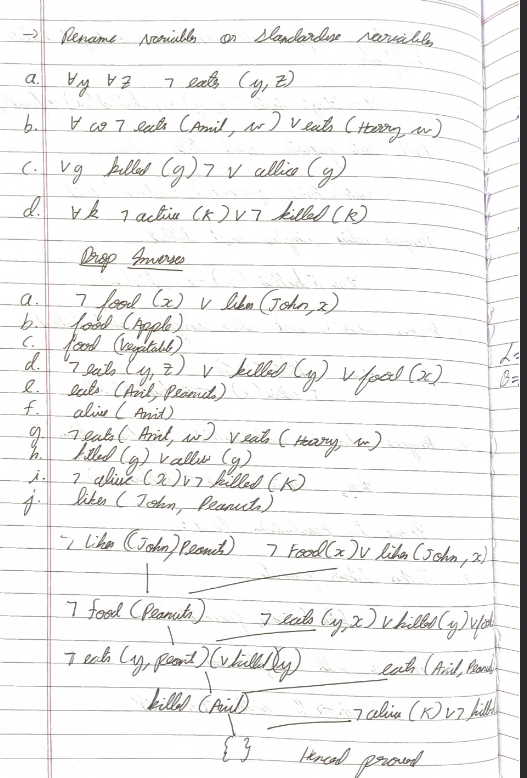 → Rename variables or standardise variables
a. ∀y ∀z ¬ eats (y, z)
b. ∀ w ¬ eats (Anil, w) V eats (Harry w)
c. ∀g killed (g) ¬ V allive (g)
d. ∀k ¬ active (K) V ¬ killed (K)
Drop Inverses
a. ¬ food (x) V likes (John, x)
b. food (Apple)
c. food (vegitable)
d. ¬ eats (y, z) V killed (y) V food (x)
e. eats (Anil, Peanuts)
f. alive (Anil)
g. ¬ eats (Anil, w) V eats (Harry, w)
h. killed (g) V allive (g)
i. ¬ alive (x) V ¬ killed (K)
j. likes (John, Peanuts)
¬ Likes ((John) Peanut) ¬ Food (x) V likes (John, x)
¬ food (Peanuts) ¬ eats (y, x) V killed (y) V
¬ eats (y, peanut) (V killed) (y) eats (Anil,
killed (Anil) ¬ alive (K) V ¬
{ } Henced proved